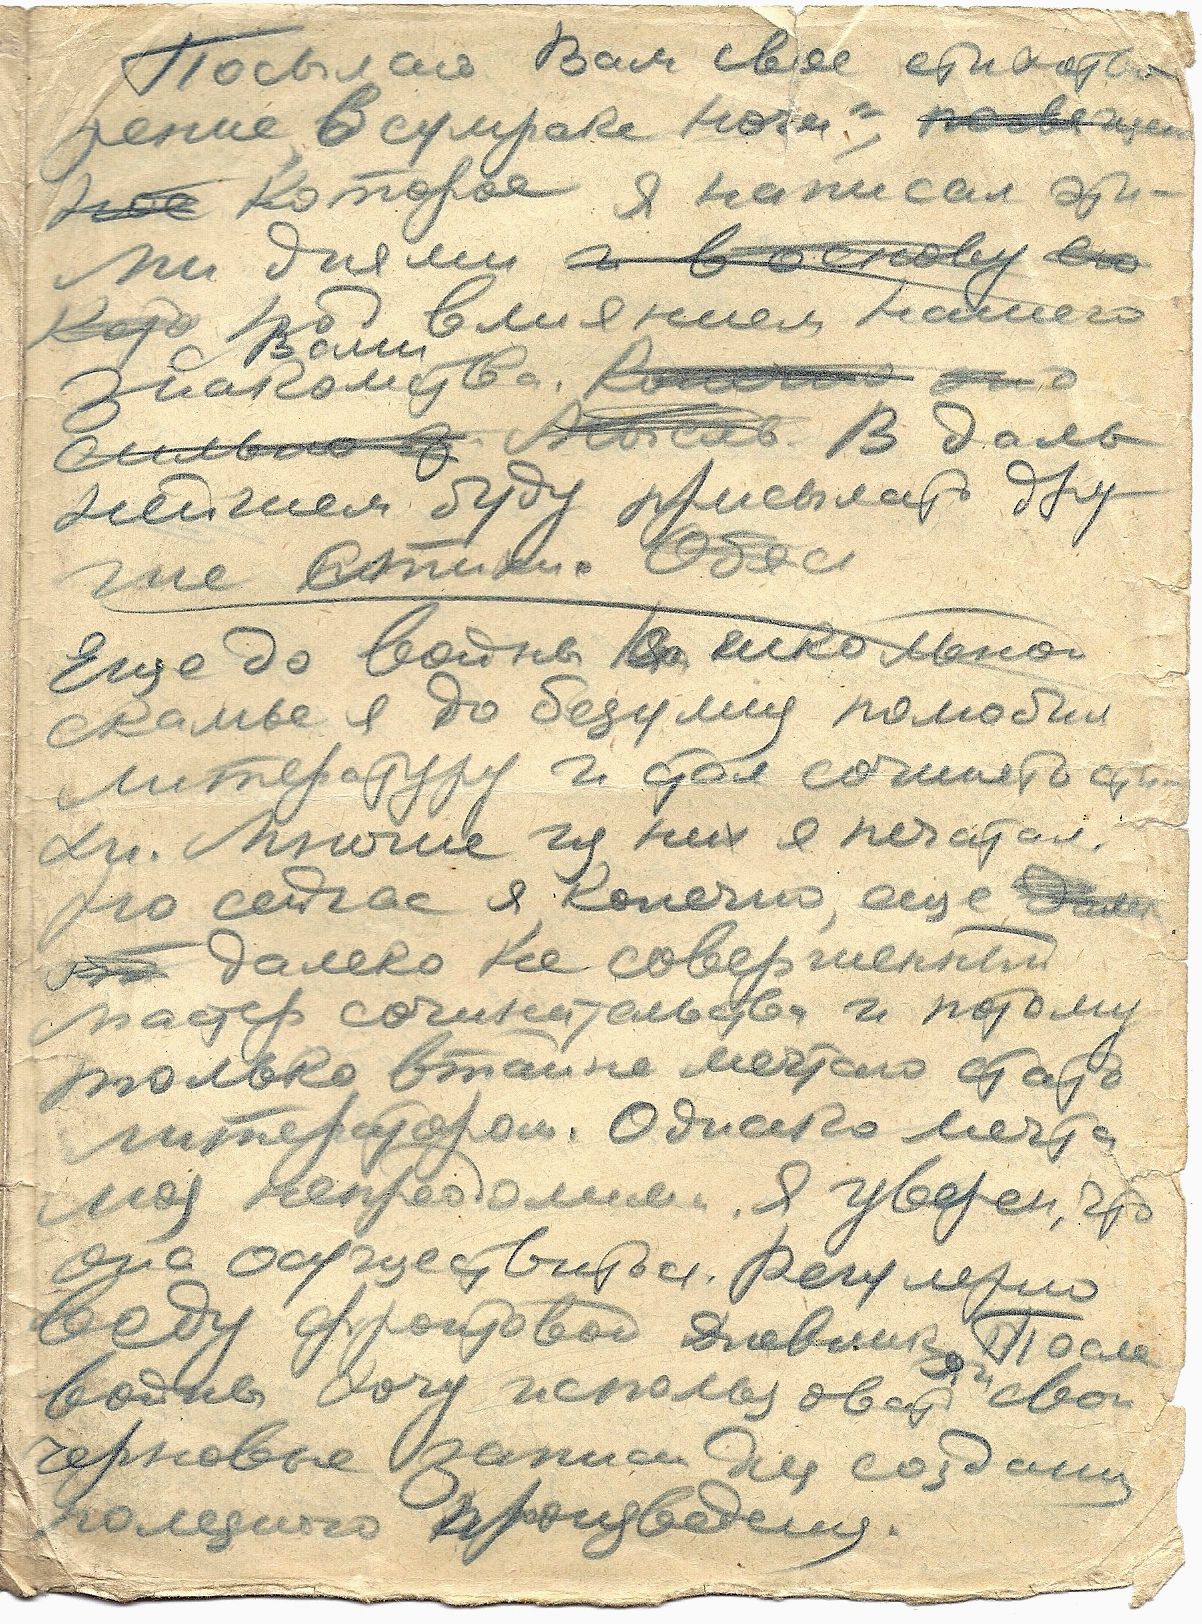 Посылаю Вам свое стихотво-
рение „В сумраке ночи“, посвящен
ное которое я написал эти-
ми днями и в основу его
кото под влиянием нашего
с Вами
знакомства. Конечно оно
сильно Мысль В даль
нейшем буду присылать дру-
гие стихи. Обяс
Еще до войны на школьной
скамье я до безумия полюбил
литературу и стал сочинять сти-
хи. Многие из них я печатал.
Но сейчас я, конечно, еще далек
далеко не совершенный
мастер сочинительства и потому
только втайне мечтаю стать
литератором. Однако мечта
моя непреодолима. Я уверен, что
она осуществиться. Регулярно
веду фронтовой дневник. После
войны хочу использовать свои
черновые записи для создания
полезного произведения.